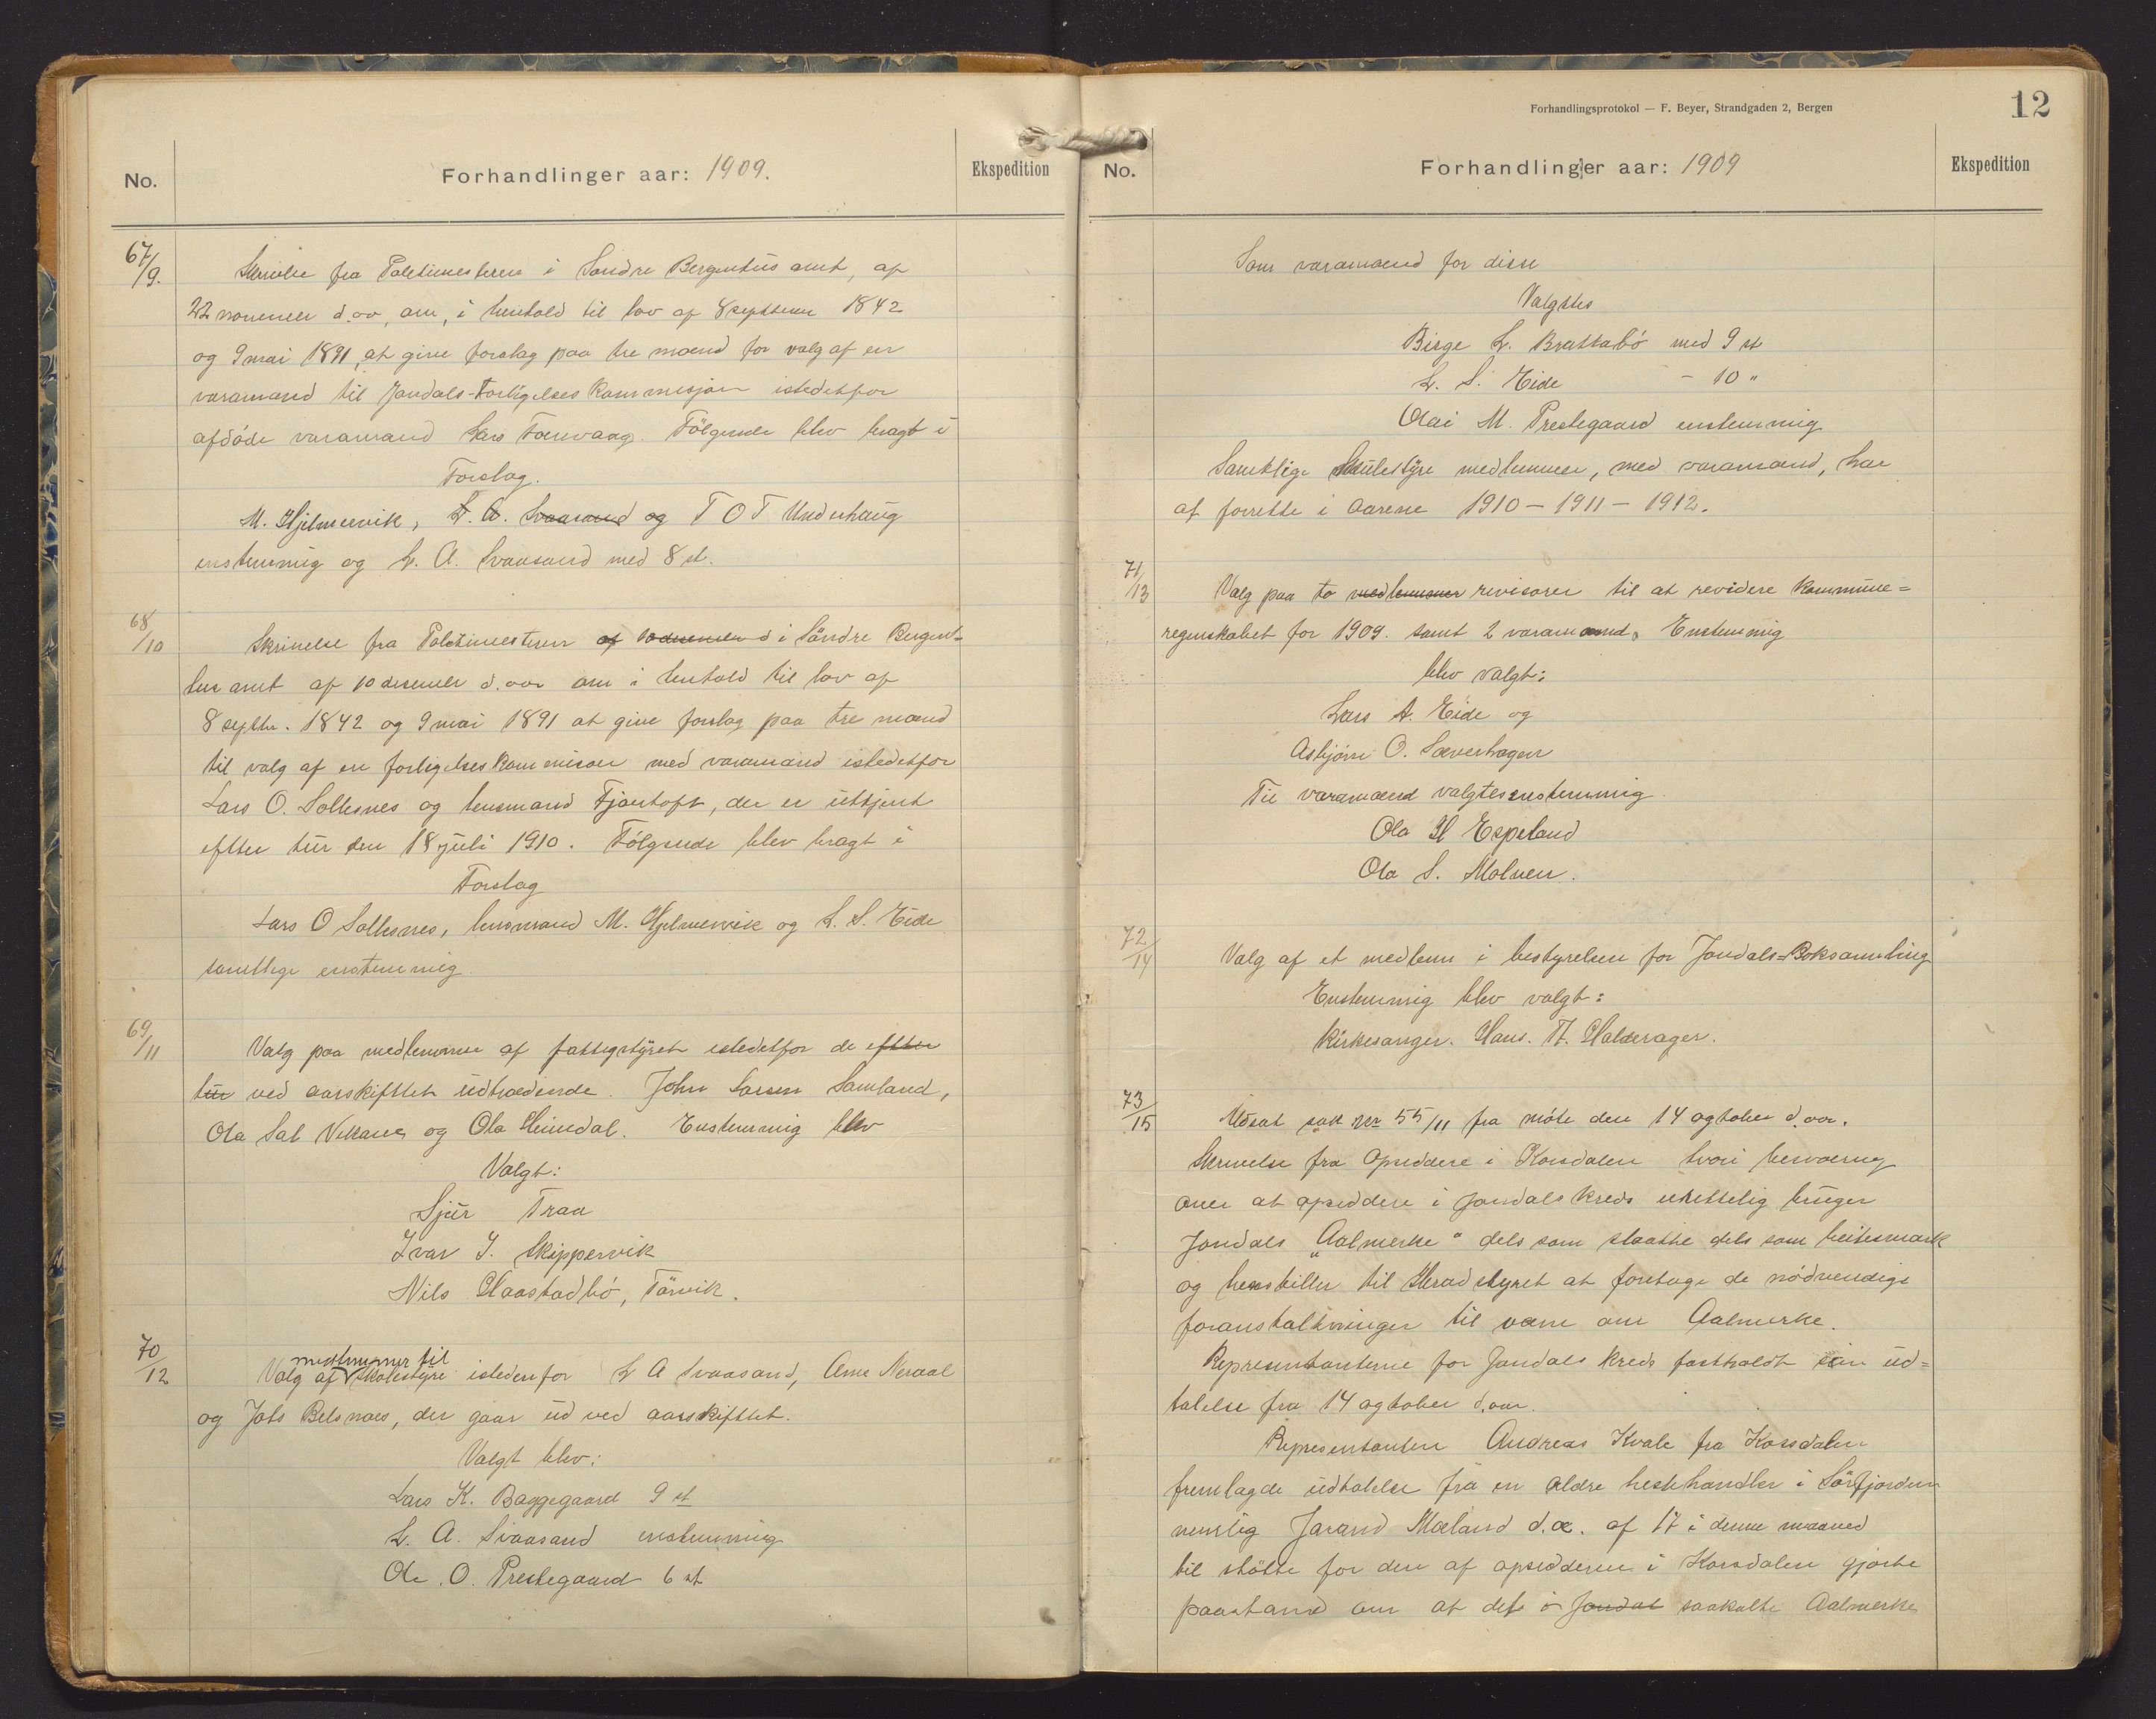 No.
Forhandlinger aar: 1909.
Ekspedition
67/9.
Skrivelse fra Politimesteren i Söndre Bergenhus amt, af
22 november d.aa, om, i henhold til lov af 8 september 1842
og 9 mai 1891, at give forslag paa tre mænd for valg af en
varamand til Jondals-Forligelses Kommisjon istedetfor
afdöde varamand Lars Fosvaag. Fölgende blev bragt i
Forslag.
M. Hjelmervik, L. A. Svaasand og T O T Underhaug
enstemmig og L. A. Svaasand med 8 st.
68/10
Skrivelse fra Politimesteren af 10 desember d i Söndre Bergen-
hus amt af 10 desember d.aar om i henhold til lov af
8 septbr. 1842 og 9 mai 1891 at give forslag paa tre mænd
til valg af en forligelseskommisær med varamand istedetfor
Lars O. Sollesnes og lensmand Fjærtoft, der er uttjent
efter tur den 18 juli 1910. Fölgende blev bragt i
Forslag
Lars O Sollesnes, lensmand M. Hjelmervik og L. S. Eide
samtlige enstemmig.
69/11
Valg paa medlemmer af fattigstyret istedetfor de efter
tur ved aarskiftet udtrædende. John Larsen Samland,
Ola Sal Vikane og Ola Heimdal. Enstemmig blev
Valgt:
Sjur Traa
Ivar J. Skippervik
Nils Haastadbö, Törvik.
70/12
medlemmer til
Valg af skolestyre istedenfor L A Svaasand, Arne Neraal
og Jots Belsnæs, der gaar ud ved aarskiftet.
Valgt blev:
Lars K. Baggegaard 9 st
L. A. Svaasand enstemmig
Ole. O. Prestegaard 6 st
Forhandlingsprotokol — F. Beyer, Strandgaden 2, Bergen
12
No.
Forhandlinger aar: 1909
Ekspedition
Som varamænd for disse
Valgtes
Birge L. Brattabö med 9 st
L. S. Eide - 10 "
Olai M. Prestegaard enstemmig
Samtlige Skulestyre medlemmer, med varamænd, har
at forrette i aarene 1910 - 1911 - 1912.
71/13
Valg paa to medlemmer revisorer til at revidere kommune=
regnskabet for 1909. samt 2 varamænd. Enstemmig
blev valgt:
Lars A. Eide og
Asbjörn O. Sæverhagen
Til varamænd valgtes enstemmig
Ola H Espeland
Ola S. Molven.
72/14
Valg af et medlem i bestyrelsen for Jondals=Boksamling
Enstemmig blev valgt:
Kirkesanger. Hans. A. Halderager.
73/15
Udsat sak nr 55/11 fra möte den 14 ogtober d.aar.
Skrivelse fra Opsiddere i Korsdalen hvori besværing
over at opsiddere i Jondals kreds urettelig bruger
Jondals „Aalmerke“ dels som slaatte dels som beitesmark
og henstiller til Heradstyret at foretage de nödvendige
foranstaltninger til værn om Aalmerke.
Representanterne for Jondals kreds fastholdt sin ud=
talelse fra 14 ogtober d.aar.
Representanten Andreas Kvale fra Korsdalen
fremlagde udtalelse fra en ældre hestehandler i Sörfjorden
nemlig Jarand Mæland d.æ. af 17 i denne maaned
til stötte for den af opsidderne i Korsdalen gjorte
paastand om at det i Jondal saakalte Aalmerke